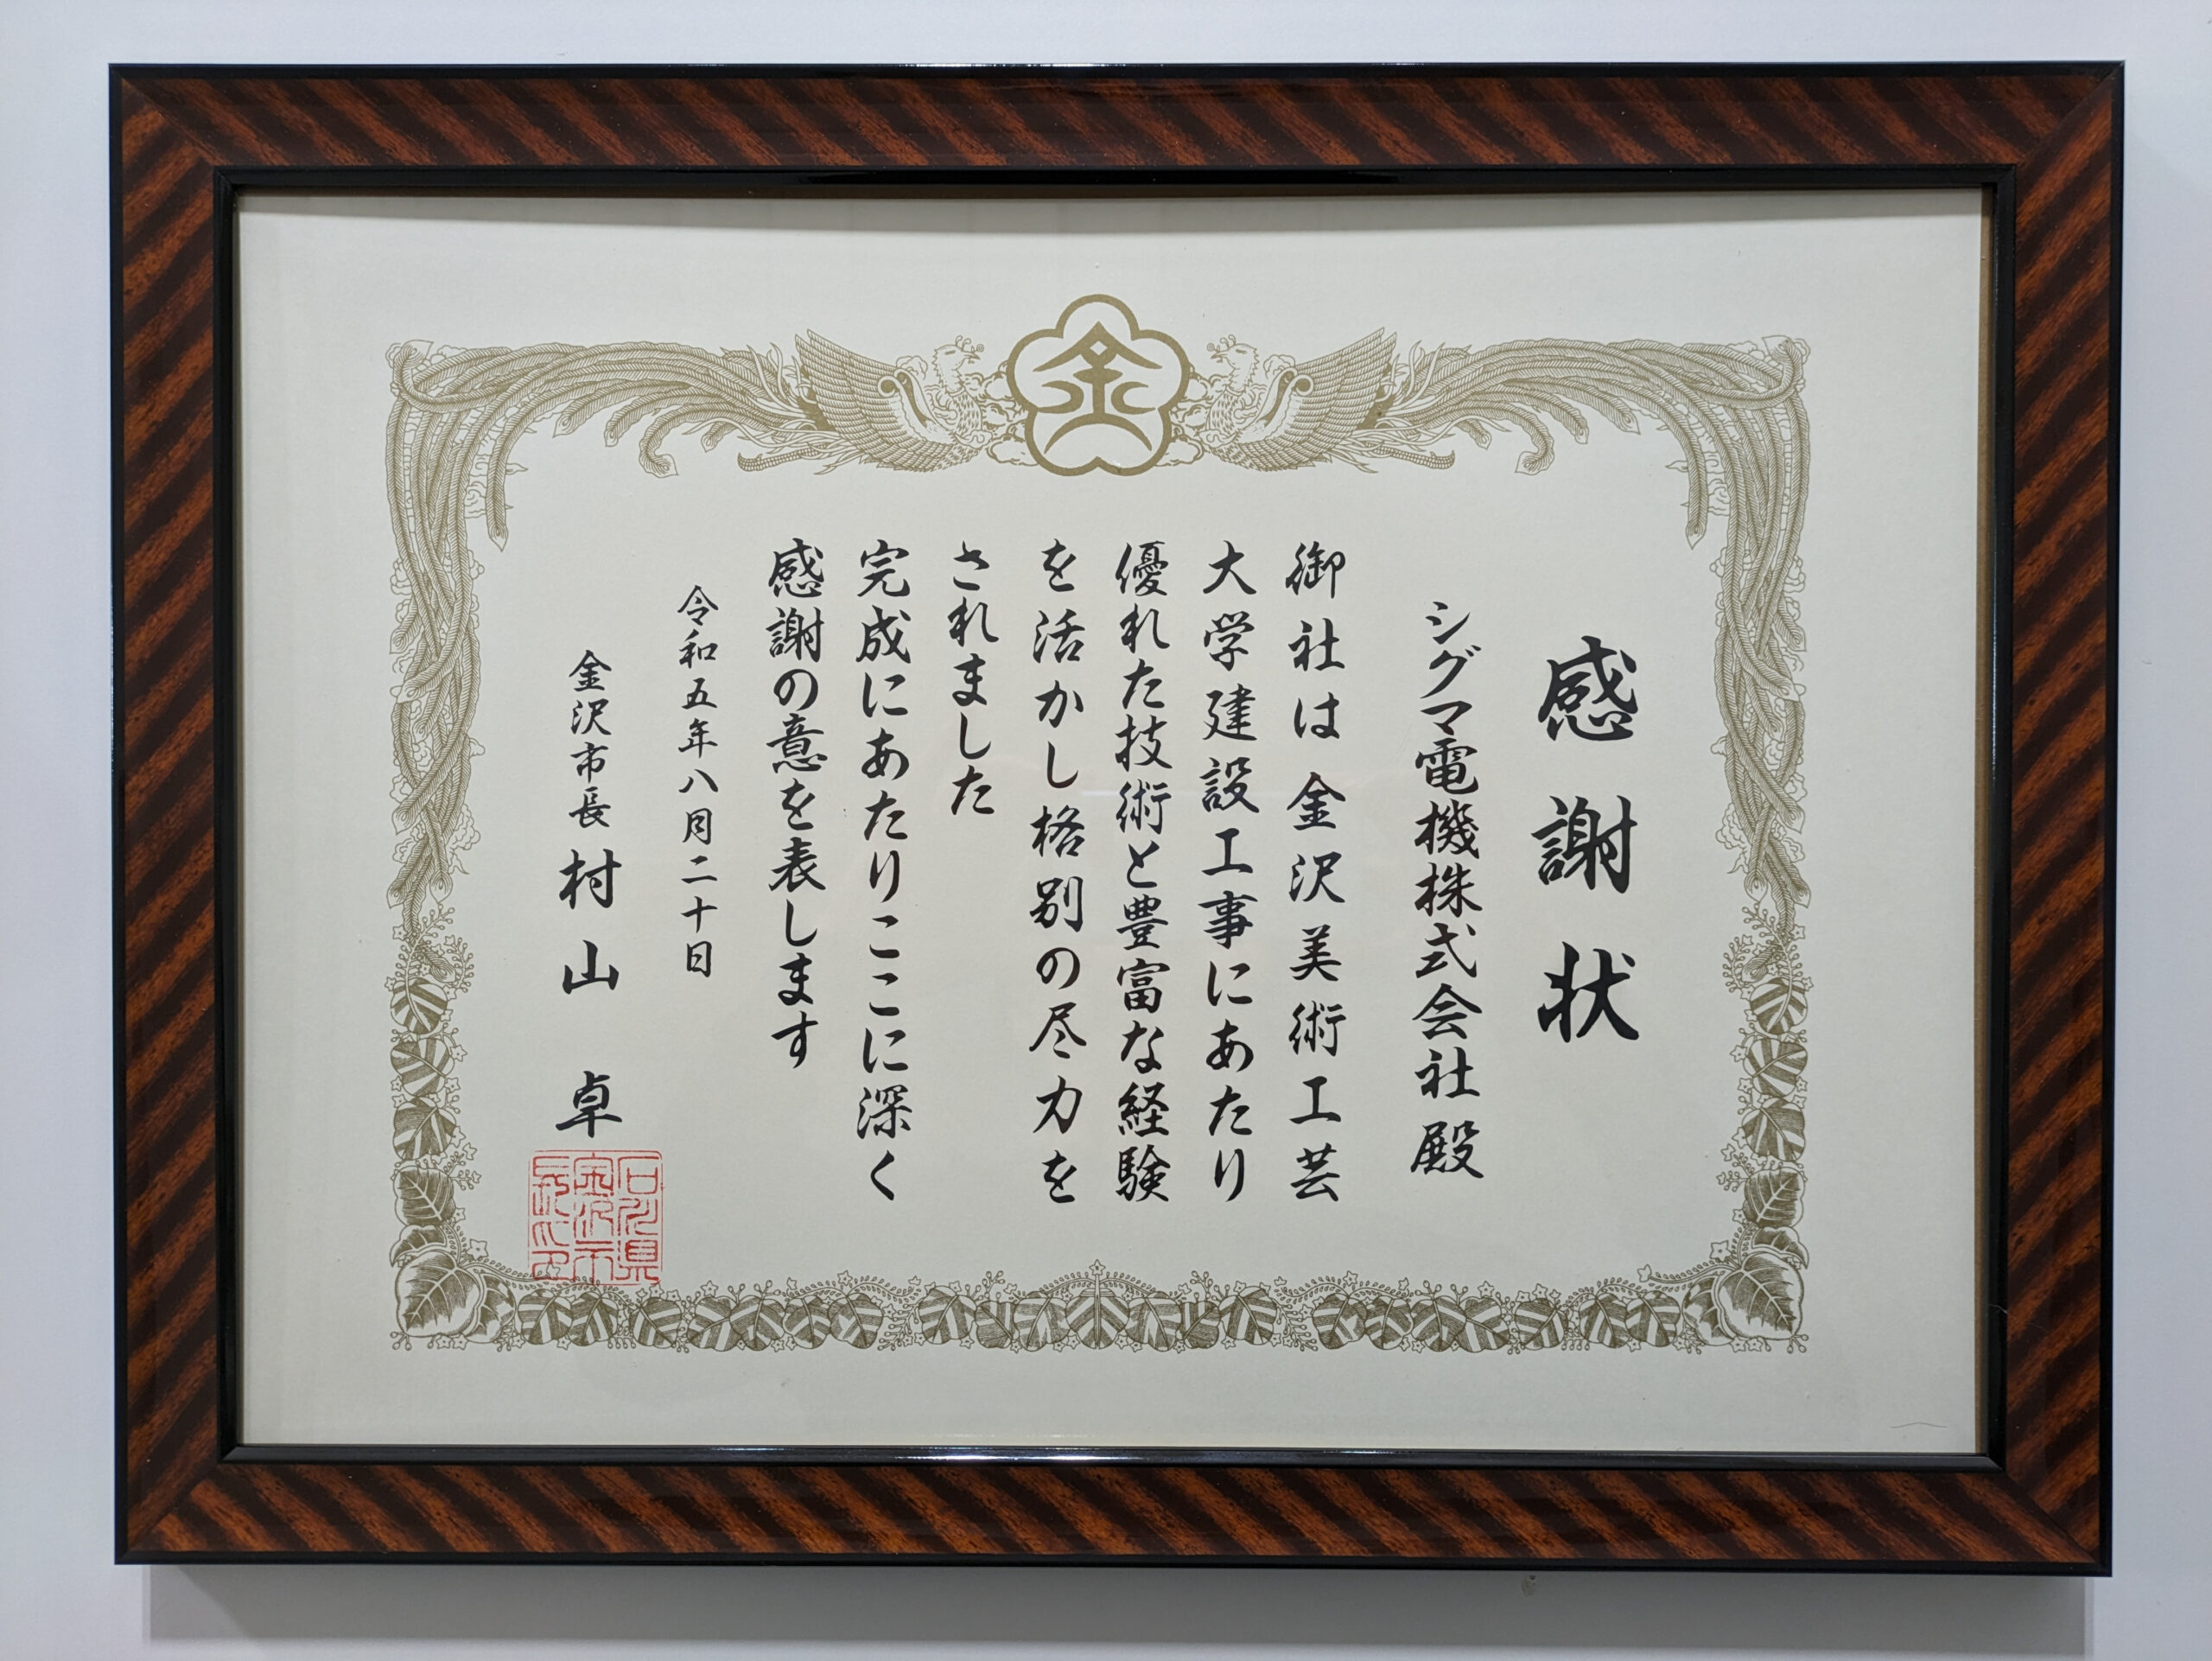 金
感謝状
シグマ電機株式会社殿
御社は金沢美術工芸
大学建設工事にあたり
優れた技術と豊富な経験
を活かし格別の尽力を
されました
完成にあたりここに深く
感謝の意を表します
令和五年八月二十日
金沢市長 村山 卓
石川県
金沢市
長之印